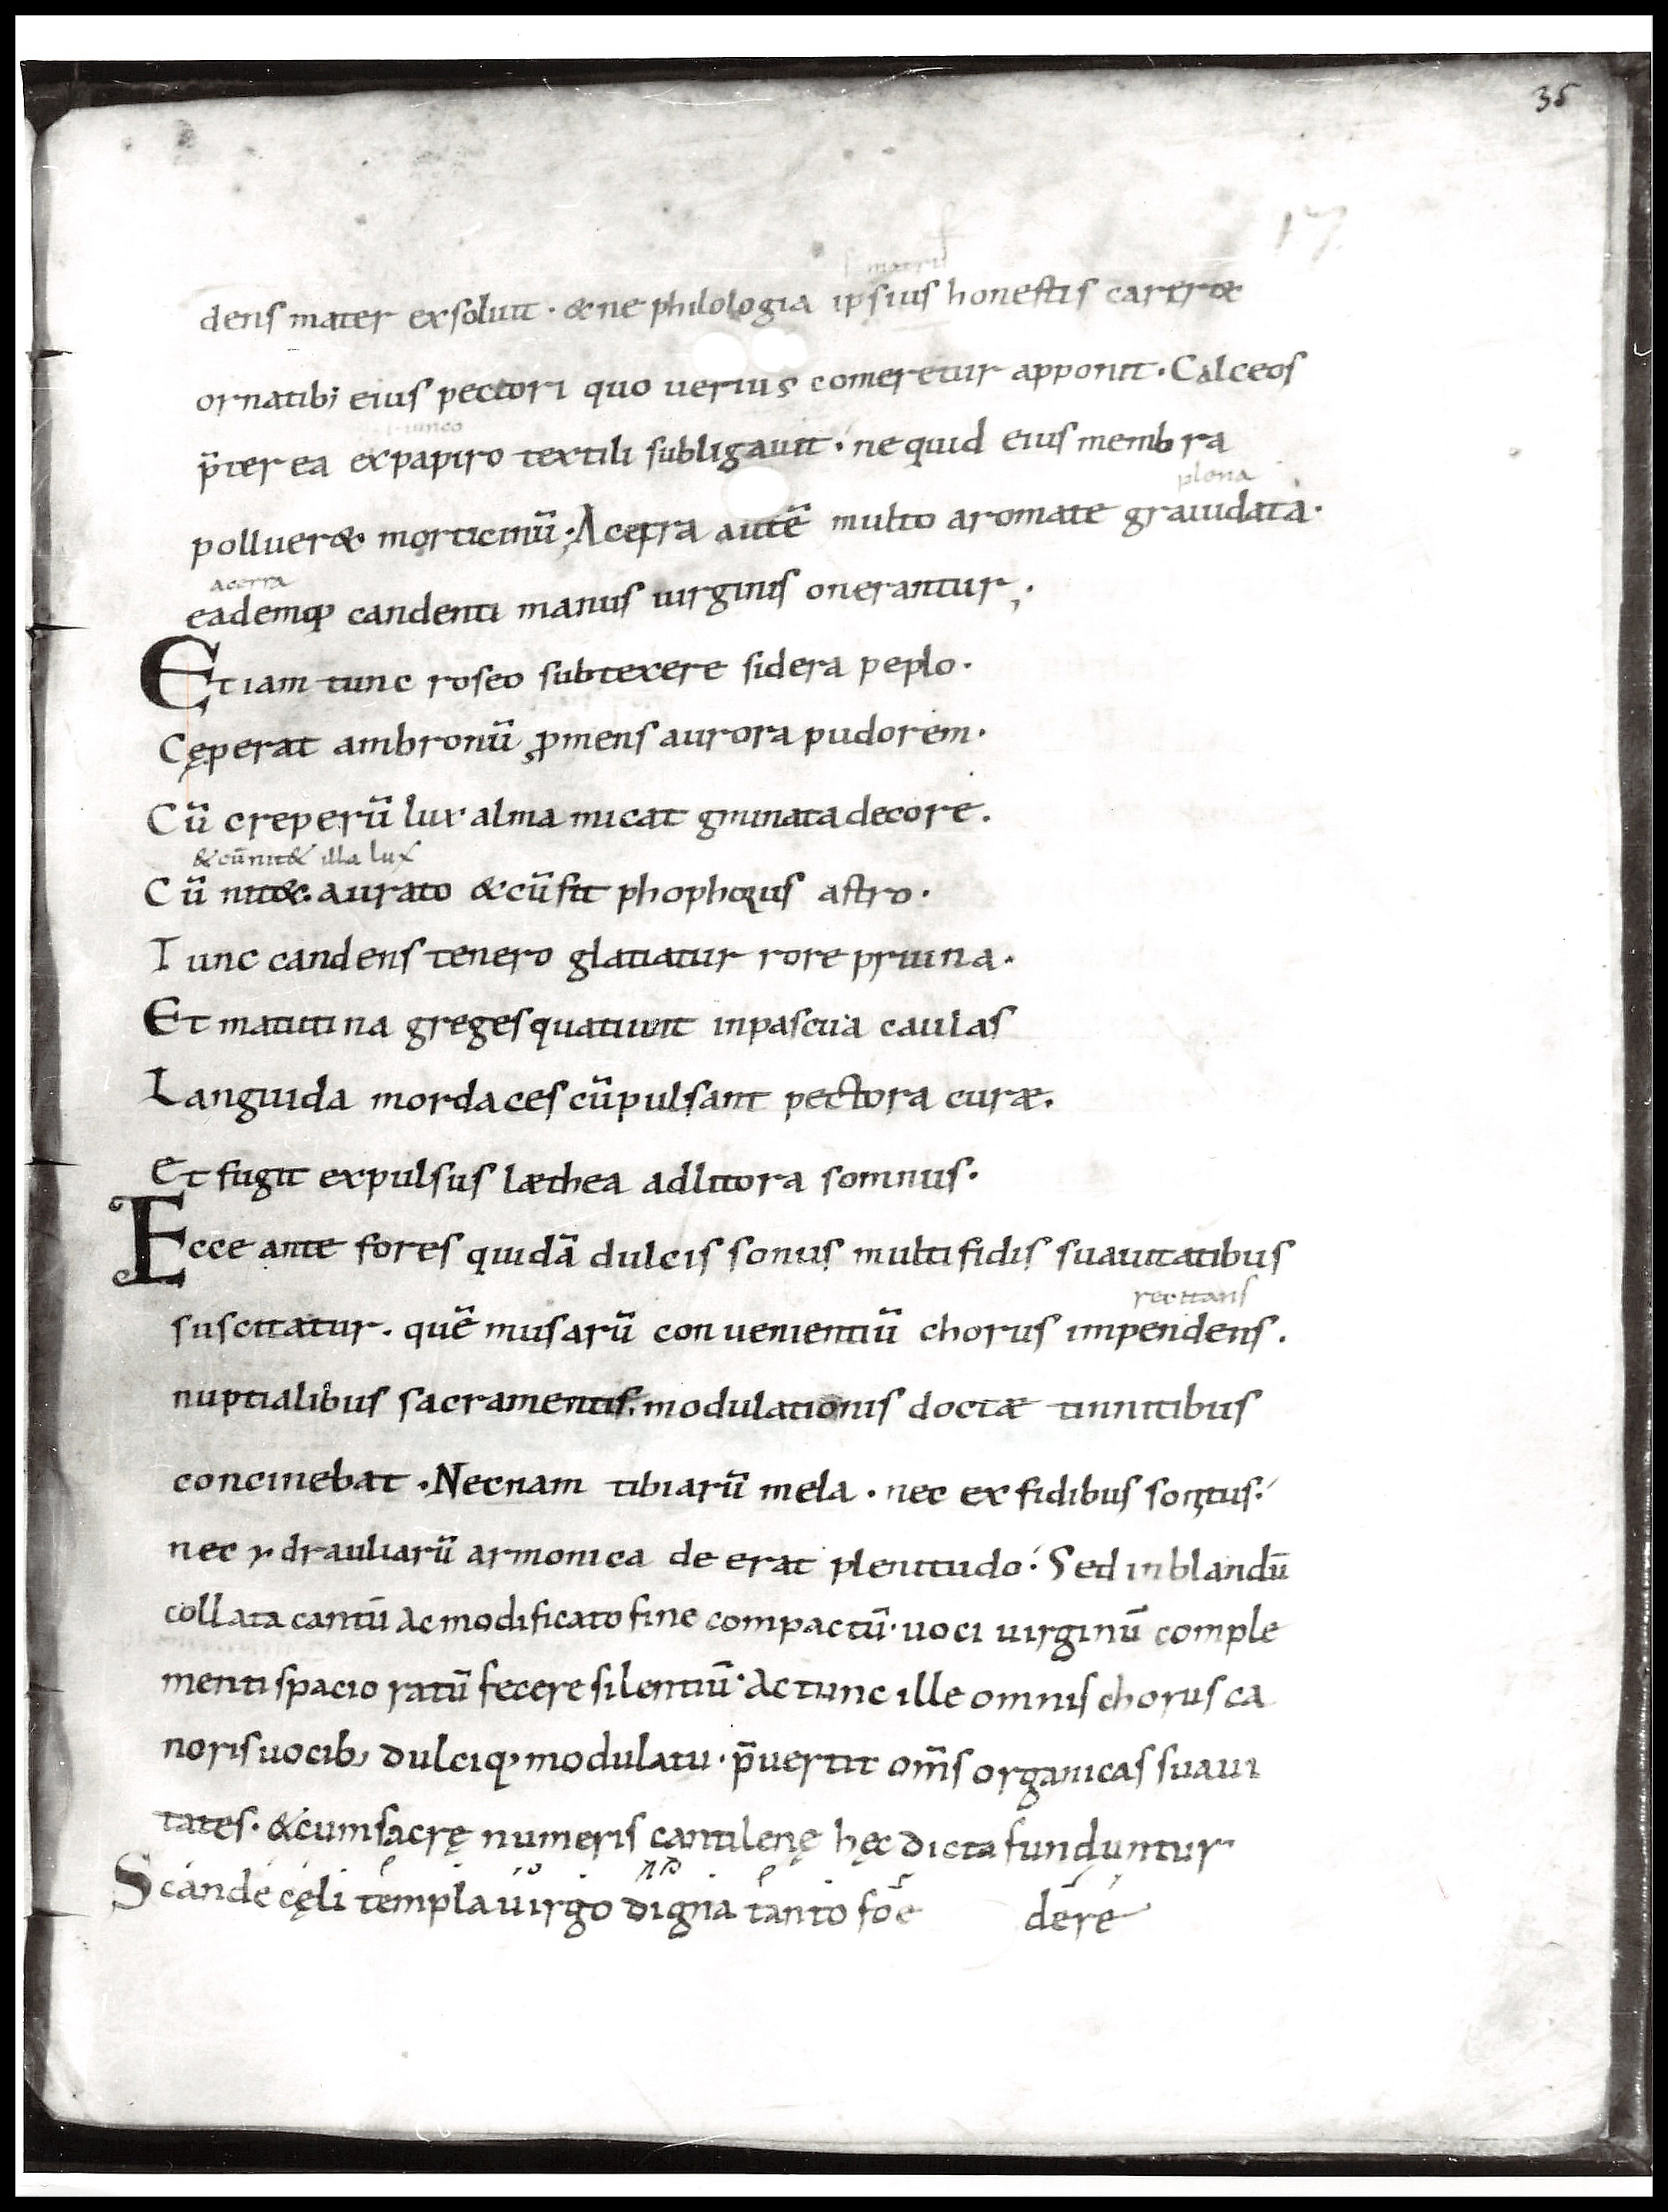 35
17
s matris
dens mater exsoluit · & ne philologia ipsius honestis carer&
ornatib; eius pectori quo uerius comeretur apponit · Calceos
iunco
p̄terea expapiro textili subligauit · ne quid eius membra
plena
polluer& morticinū · Acerra autē multo aromate grauidata ·
acerra
eademq; candenti manus uirginis onerantur ;·
Etiam tunc roseo subtexere sidera peplo ·
Cęperat ambronū ꝓmens aurora pudorem ·
Cū creperū lux alma micat gminata decore .
& cū nit& illa lux
Cū nit&. aurato & cū fit phophorus astro ·
Tunc candens tenero glatiatur rore pruina ·
Et matutina greges quatiunt inpascua caulas
Languida mordaces cū pulsant pectora curæ .
Et fugit expulsus læthea adlitora somnus ·
Ecce ante fores quidā dulcis sonus multifidis suauitatibus
recitans
suscitatur . quē musarū conuenientiū chorus impendens .
nuptialibus sacramentis . modulationis doctæ tinnitibus
concinebat . Necnam tibiarū mela . nec ex fidibus sonitus .
nec ydrauliarū armonica de erat plenitudo . Sed in blandū
collata cantū ac modificato fine compactū · uoci uirginū comple
menti spacio ratū fecere silentiū · Ac tunc ille omnis chorus ca
noris uocib; dulciq; modulatu · p̄uertit om̄s organicas suaui
tates · & cum sacrę numeris cantilenę hęc dicta funduntur
Scande cęli templa uirgo digna tanto foe dere